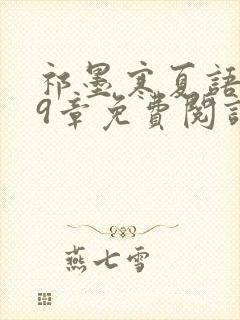 祁墨寒夏語
9章免費閱讀
燕七雪